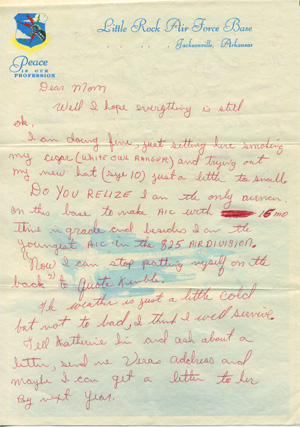 Little Rock Air Force Base
Jacksonville, Arkansas
Peace
IS OUR
PROFESSION
Dear Mom
Well I hope everything is still
ok.
I am doing fine, just setting here smoking
my cigar (WHITE OWL RANGER) and trying out
my new hat (size 10) just a little to small.
DO YOU RELIZE I am the only airman
on this base to make A1C with 16 mo
time in grade and besides I am the
youngest A1C in the 825 AIR DIVISION.
Now I can stop patting myself on the
back to Quote Kimble.
The weather is just a little cold
but not to bad, I think I will survive.
Tell Katherine hi and ask about a
letter, send me Veras address and
maybe I can get a letter to her
By next year.